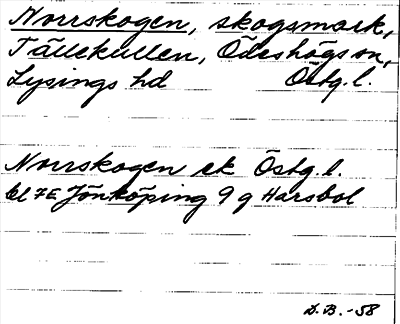 Norrskogen, skogsmark,
Tällekullen, Ödeshögs sn,
Lysings hd Östg. l.
Norrskogen ek Östg. l.
bl 7E Jönköping 9 g Harsbol
D. B. -58